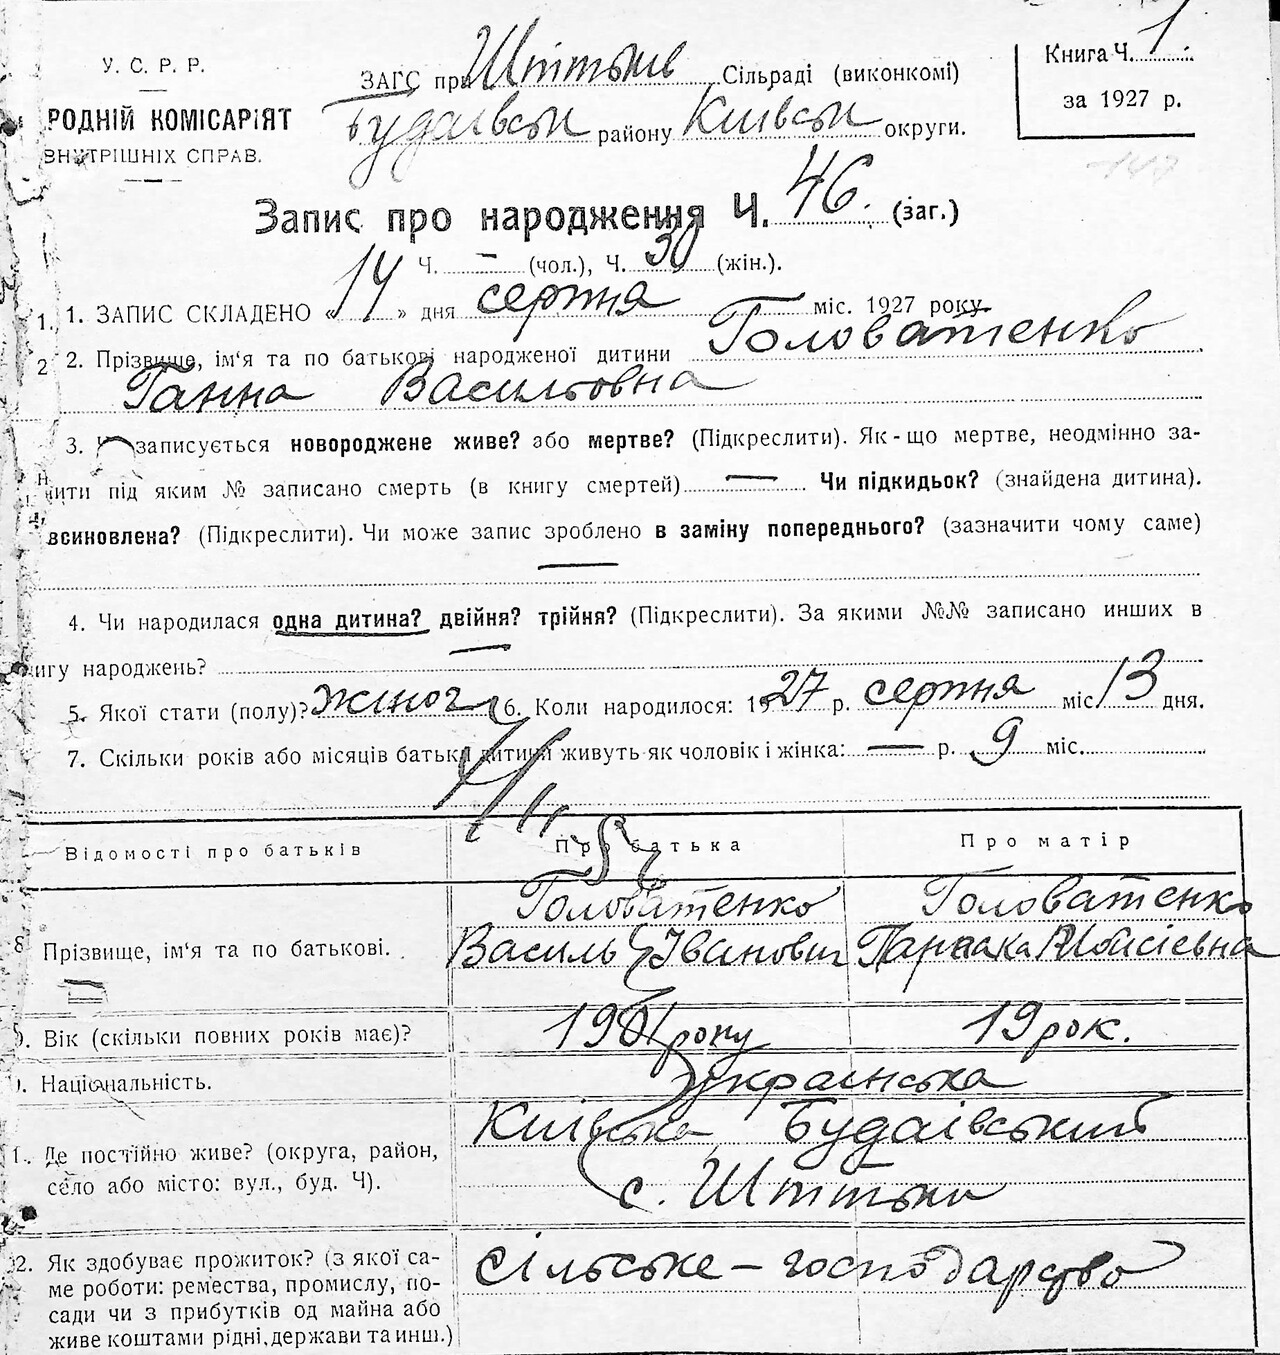 У. С. Р. Р.
РОДНІЙ КОМІСАРІЯТ
ВНУТРІШНІХ СПРАВ.
ЗАГС при Сільраді (виконкомі)
Будаївськ району Київськ округи.
Книга Ч. 1
за 1927 р.
147
Запис про народження Ч. 46. (заг.)
Ч. — (чол.), Ч. 30 (жін.).
1. 1. ЗАПИС СКЛАДЕНО «14» дня серпня міс. 1927 року.
2 2. Прізвище, ім'я та по батькові народженої дитини Головатенко
Ганна Васильовна
3. записується новороджене живе? або мертве? (Підкреслити). Як-що мертве, неодмінно за-
чити під яким № записано смерть (в книгу смертей) — Чи підкидьок? (знайдена дитина).
всиновлена? (Підкреслити). Чи може запис зроблено в заміну попереднього? (зазначити чому саме)
—
4. Чи народилася одна дитина? двійня? трійня? (Підкреслити). За якими №№ записано инших в
игу народжень? —
5. Якої стати (полу)? жіноч 6. Коли народилося: 1927 р. серпня міс 13 дня.
7. Скільки років або місяців батьки дитини живуть як чоловік і жінка: — р. 9 міс.
Відомості про батьків
Про батька
Про матір
8 Прізвище, ім'я та по батькові.
Головатенко
Василь Іванович
Головатенко
Параска Мойсієвна
. Вік (скільки повних років має)?
1901 року
19 рок.
. Національність.
українська
1. Де постійно живе? (округа, район,
село або місто: вул., буд. Ч).
Київська Будаївський
с. Шпітьки
2. Як здобуває прожиток? (з якої са-
ме роботи: ремества, промислу, по-
сади чи з прибутків од майна або
живе коштами рідні, держави та инш.)
сільське – господарство